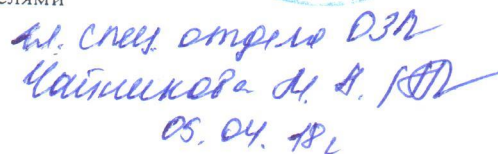 елями
гл. спец. отдела ОЗП
Чайникова М. А.
05. 04. 18г